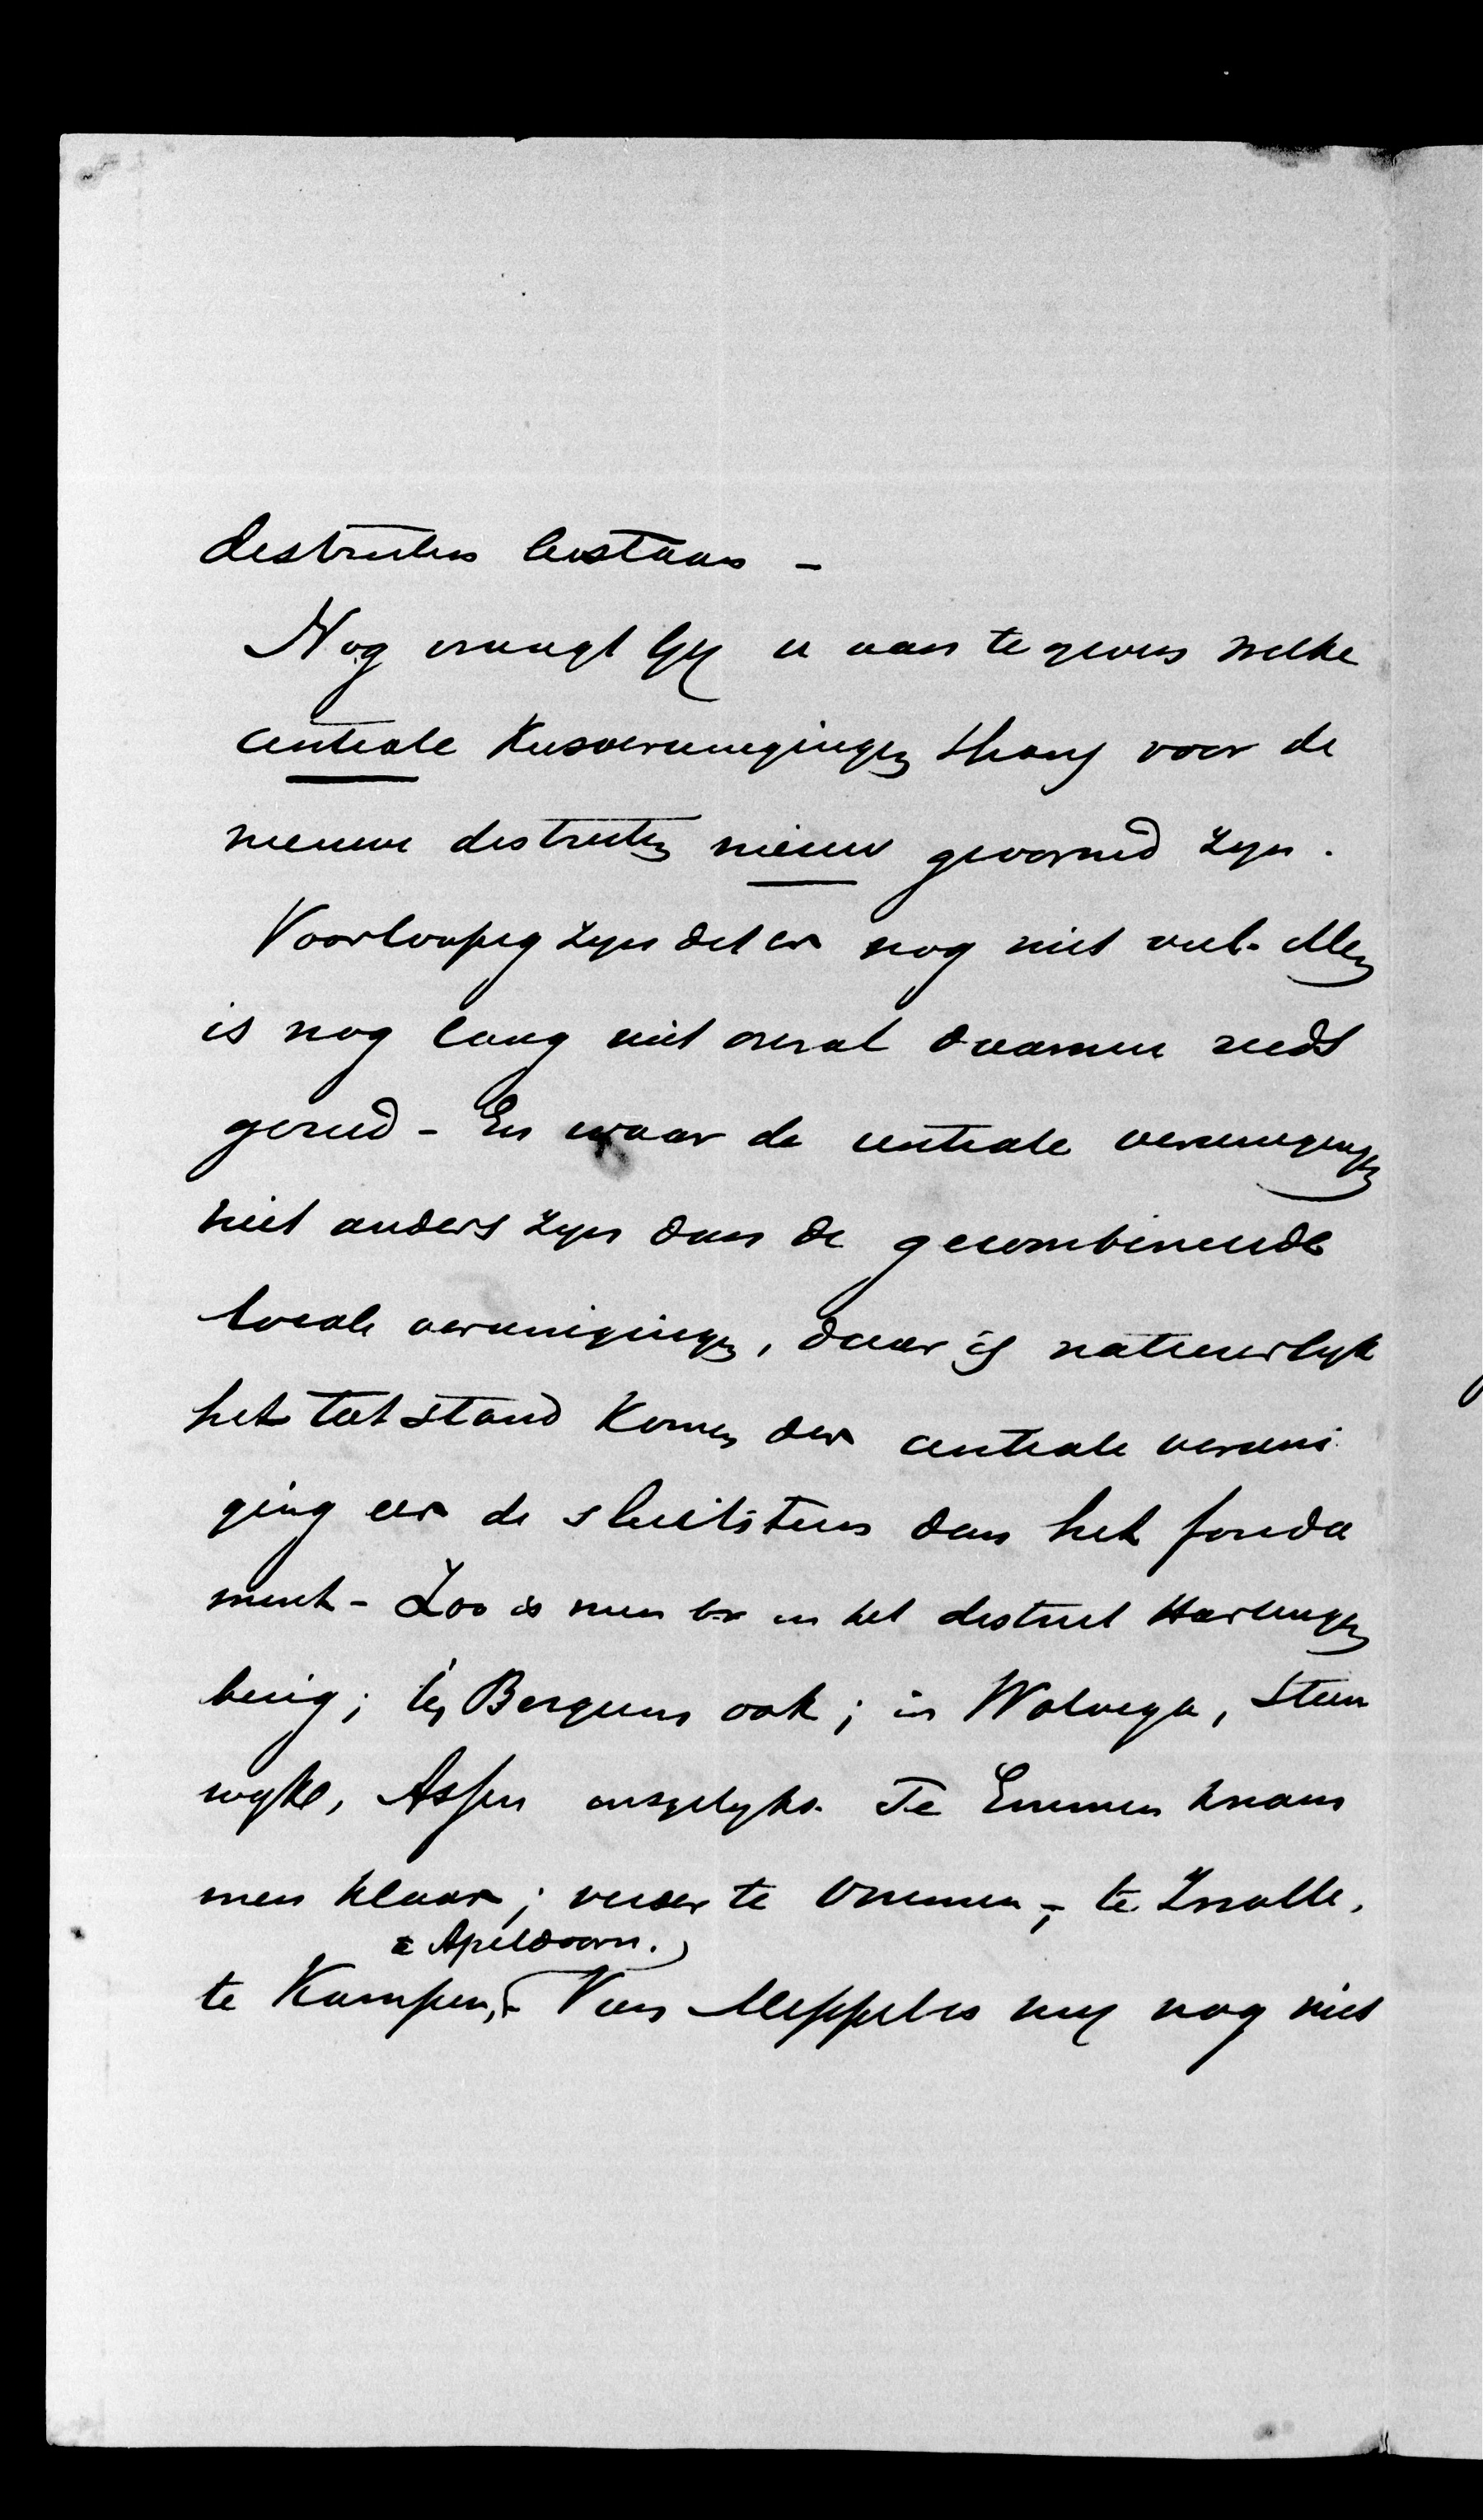 districten bestaan –
Nog vraagt Gij u aan te geven welke
centrale Kiesvereenigingen thans voor de
nieuwe districten nieuw gevormd zijn.
Voorloopig zijn dat er nog niet veel. Men
is nog lang niet overal daarmee reeds
gereed – En waar de centrale vereenigingen
niet anders zijn dan de gecombineerde
locale vereenigingen, daar is natuurlijk
het tot stand komen der centrale vereeni
ging eer de sluitsteen dan het fonda
ment – Zoo is men in het district Harlingen
bezig; bij Bergum ook; in Wolvega, Steen
wijk, Assen insgelijks. Te Emmen kwam
men klaar; verder te Ommen, – te Zwolle,
& Apeldoorn.
te Kampen, – Van Meppel is mij nog niet